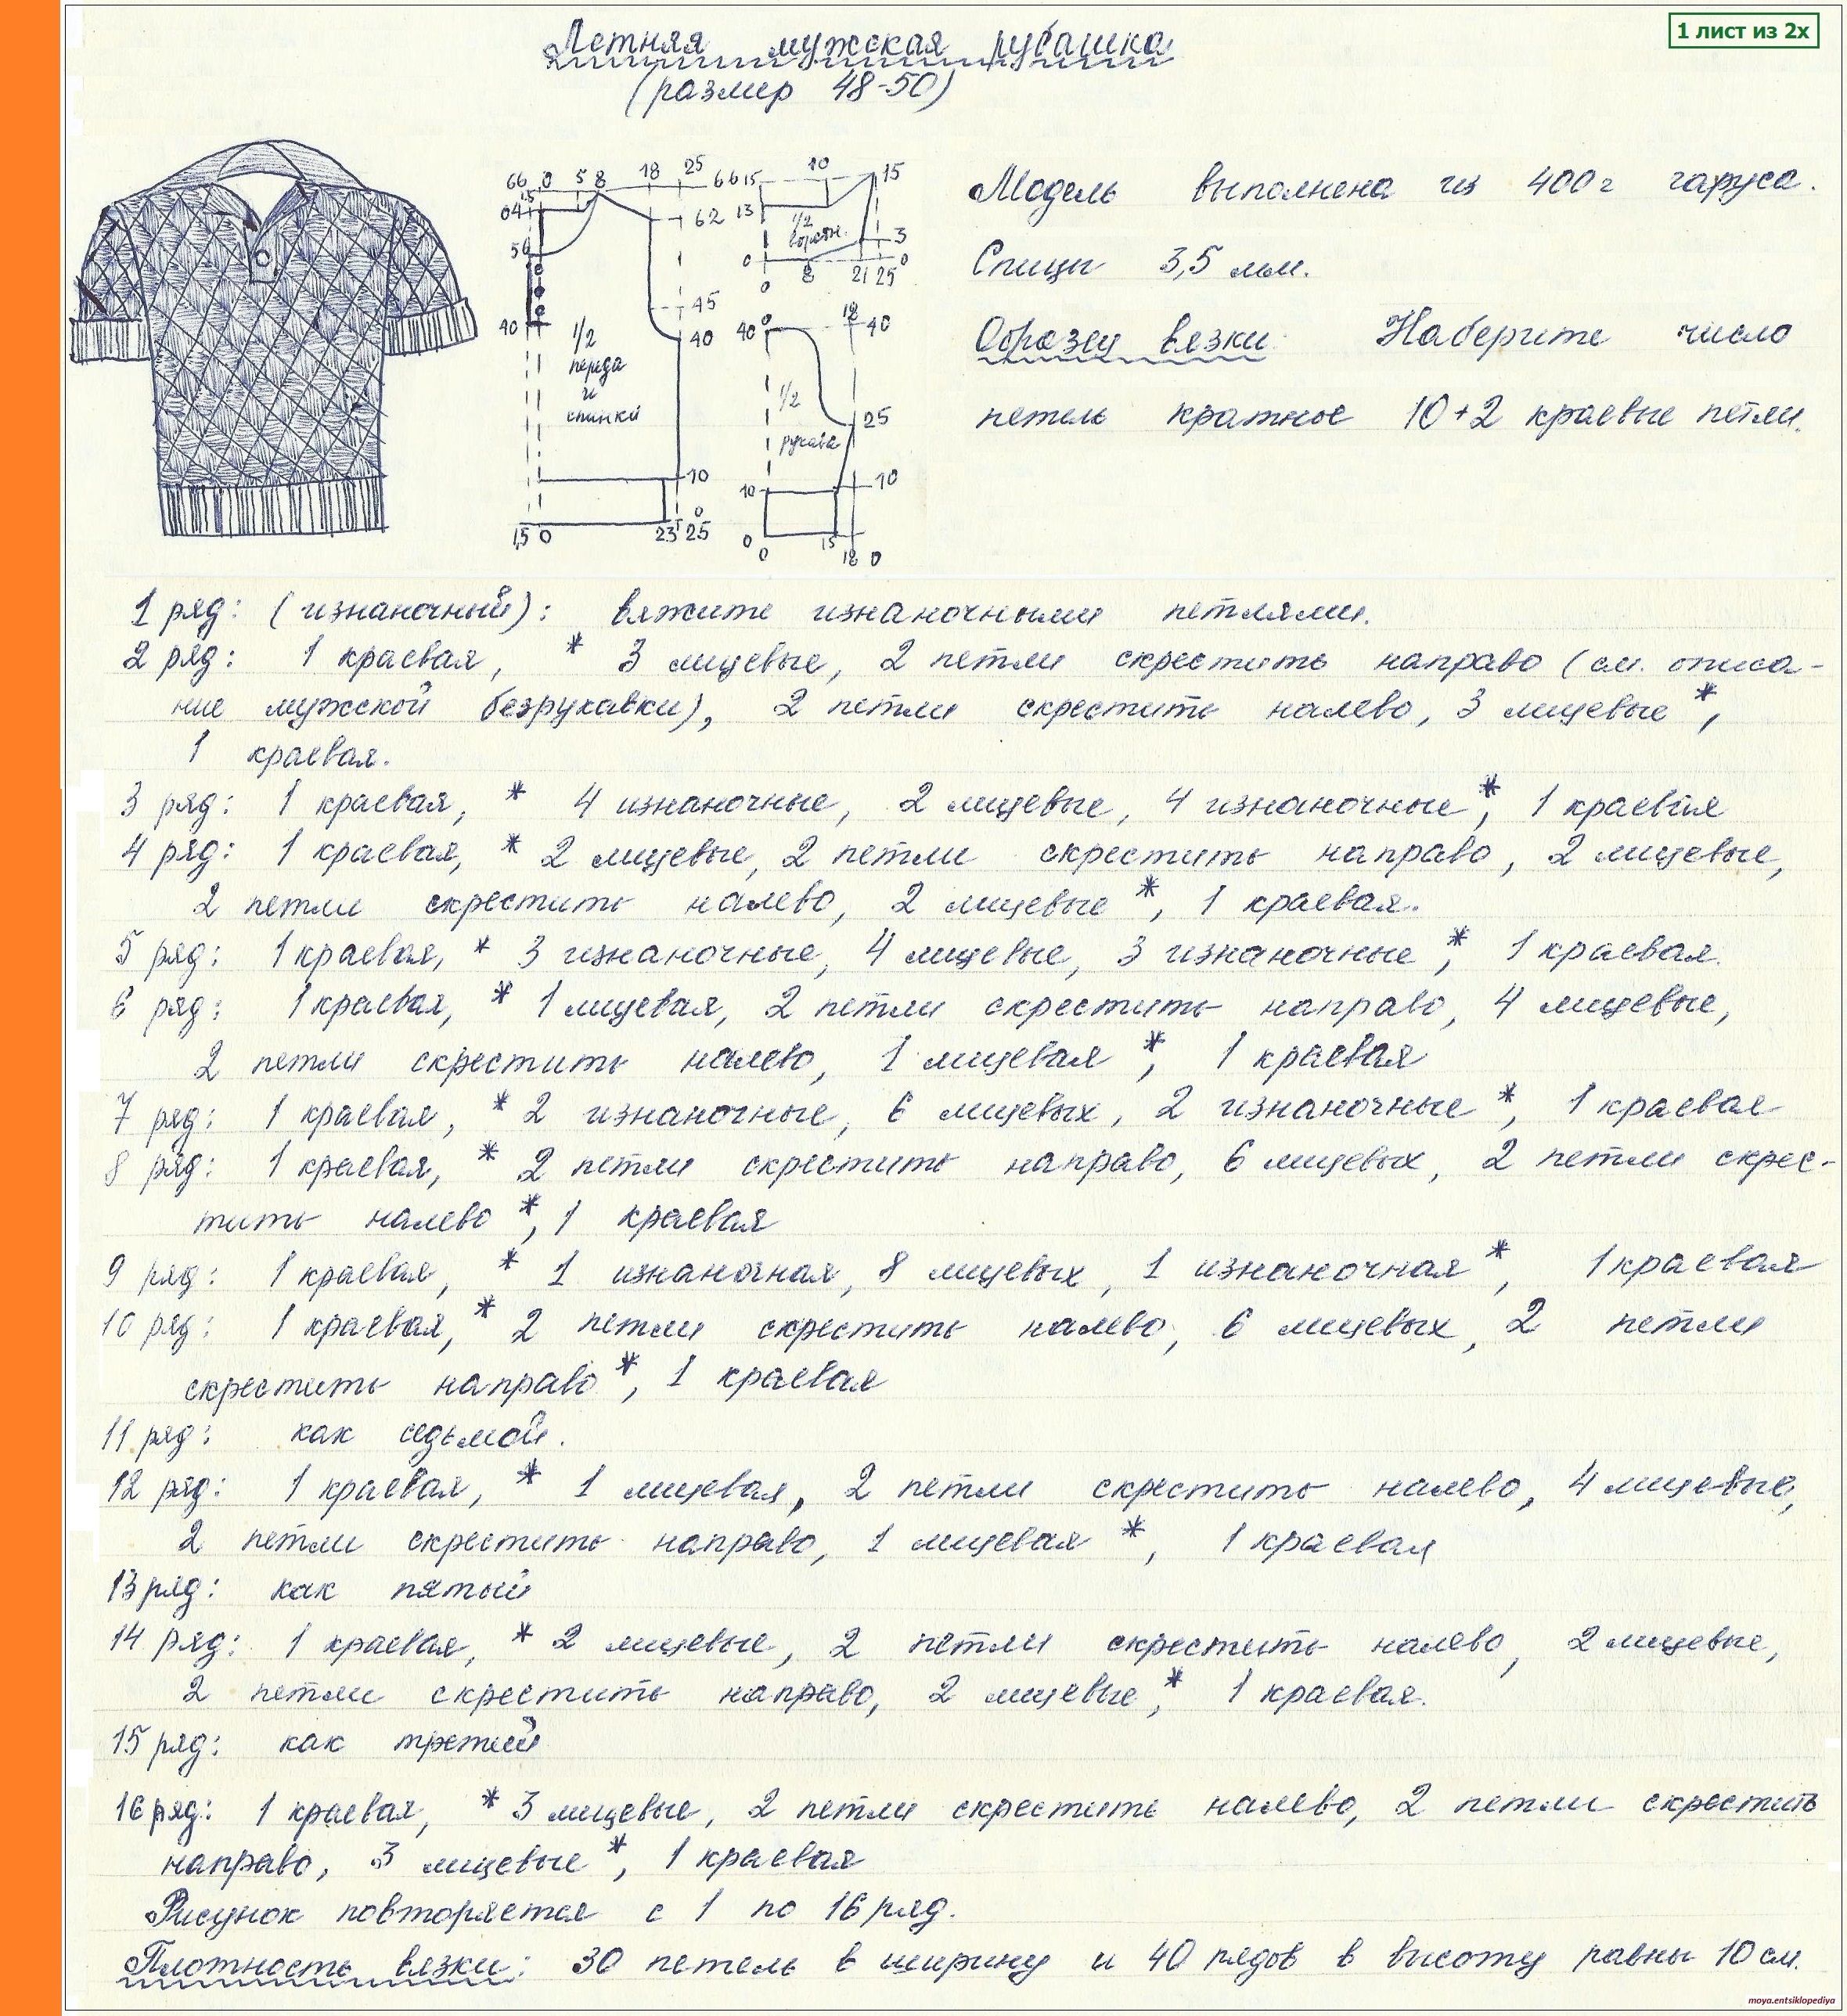 1 лист из 2х
Летняя мужская рубашка
(размер 48-50)
66 0 5 8 18 25 66 15 10 15
1,5
64 62 13 1/2
воротн. 3
56 0 8 21 25 0
0
45 12
40 1/2 40 40 0 40
переда
и 1/2
спинки 25
рукава
10 10 10
0
1,5 0 23 25 0 0 15 18 0
Модель выполнена из 400г гаруса.
Спицы 3,5 мм.
Образец вязки. Наберите число
петель кратное 10+2 краевые петли.
1 ряд: (изнаночный): вяжите изнаночными петлями.
2 ряд: 1 краевая, * 3 лицевые, 2 петли скрестить направо (см. описа-
ние мужской безрукавки), 2 петли скрестить налево, 3 лицевые *,
1 краевая.
3 ряд: 1 краевая, * 4 изнаночные, 2 лицевые, 4 изнаночные *, 1 краевая
4 ряд: 1 краевая, * 2 лицевые, 2 петли скрестить направо, 2 лицевые,
2 петли скрестить налево, 2 лицевые *, 1 краевая.
5 ряд: 1 краевая, * 3 изнаночные, 4 лицевые, 3 изнаночные *, 1 краевая.
6 ряд: 1 краевая, * 1 лицевая, 2 петли скрестить направо, 4 лицевые,
2 петли скрестить налево, 1 лицевая *, 1 краевая
7 ряд: 1 краевая, * 2 изнаночные, 6 лицевых, 2 изнаночные *, 1 краевая
8 ряд: 1 краевая, * 2 петли скрестить направо, 6 лицевых, 2 петли скрес-
тить налево *, 1 краевая
9 ряд: 1 краевая, * 1 изнаночная, 8 лицевых, 1 изнаночная *, 1 краевая
10 ряд: 1 краевая, * 2 петли скрестить налево, 6 лицевых, 2 петли
скрестить направо *, 1 краевая
11 ряд: как седьмой.
12 ряд: 1 краевая, * 1 лицевая, 2 петли скрестить налево, 4 лицевые,
2 петли скрестить направо, 1 лицевая *, 1 краевая
13 ряд: как пятый
14 ряд: 1 краевая, * 2 лицевые, 2 петли скрестить налево, 2 лицевые,
2 петли скрестить направо, 2 лицевые *, 1 краевая.
15 ряд: как третий
16 ряд: 1 краевая, * 3 лицевые, 2 петли скрестить налево, 2 петли скрестить
направо, 3 лицевые *, 1 краевая
Рисунок повторяется с 1 по 16 ряд.
Плотность вязки: 30 петель в ширину и 40 рядов в высоту равны 10 см.
moya.entsiklopediya